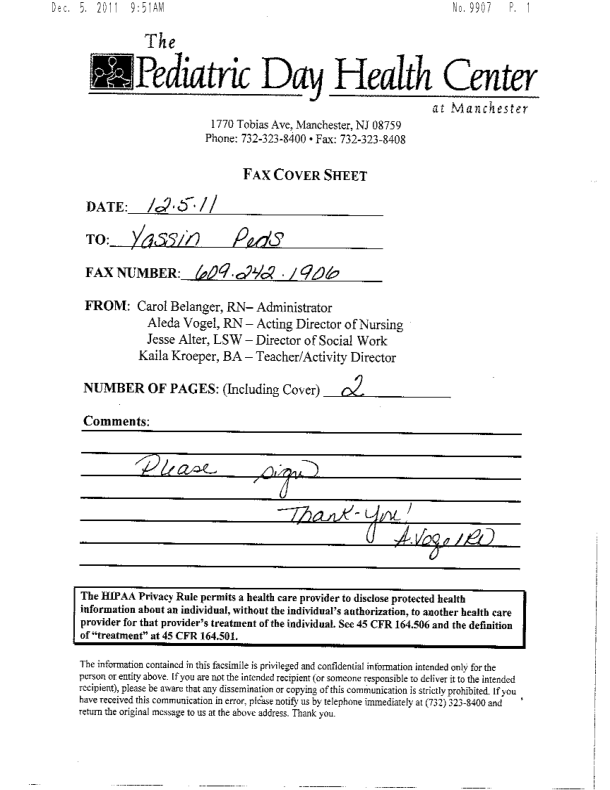 Dec. 5. 2011 9:51AM No. 9907 P. 1
The
Pediatric Day Health Center
at Manchester
1770 Tobias Ave, Manchester, NJ 08759
Phone: 732-323-8400 • Fax: 732-323-8408
FAX COVER SHEET
DATE: 12.5.11
TO: Yassin Peds
FAX NUMBER: 609.242.1906
FROM: Carol Belanger, RN– Administrator
Aleda Vogel, RN – Acting Director of Nursing
Jesse Alter, LSW – Director of Social Work
Kaila Kroeper, BA – Teacher/Activity Director
NUMBER OF PAGES: (Including Cover) 2
Comments:
Please sign
Thank-you!
A.Vogel RN
The HIPAA Privacy Rule permits a health care provider to disclose protected health
information about an individual, without the individual's authorization, to another health care
provider for that provider's treatment of the individual. See 45 CFR 164.506 and the definition
of "treatment" at 45 CFR 164.501.
The information contained in this facsimile is privileged and confidential information intended only for the
person or entity above. If you are not the intended recipient (or someone responsible to deliver it to the intended
recipient), please be aware that any dissemination or copying of this communication is strictly prohibited. If you
have received this communication in error, please notify us by telephone immediately at (732) 323-8400 and
return the original message to us at the above address. Thank you.